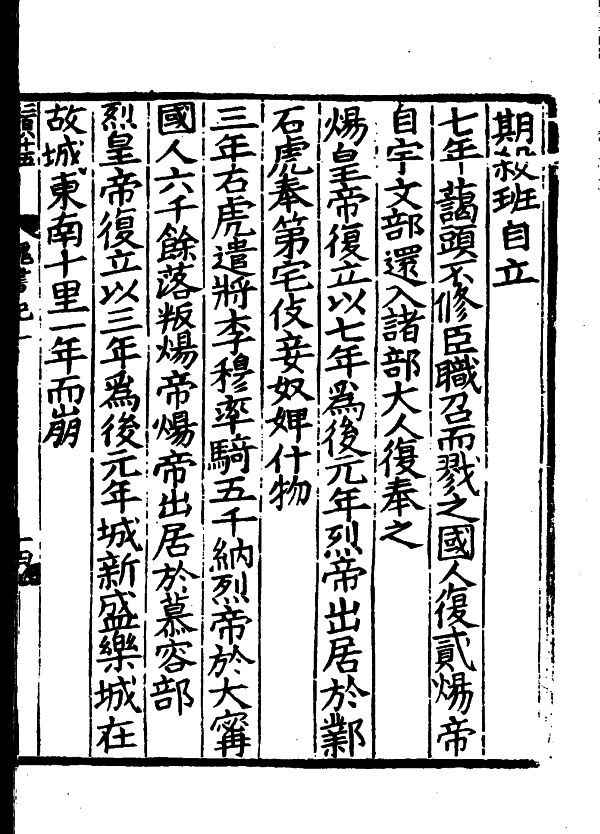 期殺班自立
七年藹頭不修臣職召而戮之國人復貳煬帝
自宇文部還入諸部大人復奉之
煬皇帝復立以七年爲後元年烈帝出居於鄴
石虎奉第宅伎妾奴婢什物
三年石虎遣將李穆率騎五千納烈帝於大甯
國人六千餘落叛煬帝煬帝出居於慕容部
烈皇帝復立以三年爲後元年城新盛樂城在
故城東南十里一年而崩
魏書紀一